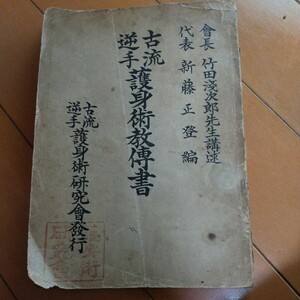 會長 竹田淺次郎先生講述
代表 新藤正登編
古流
逆手 護身術教傳書
古流
逆手 護身術研究會發行